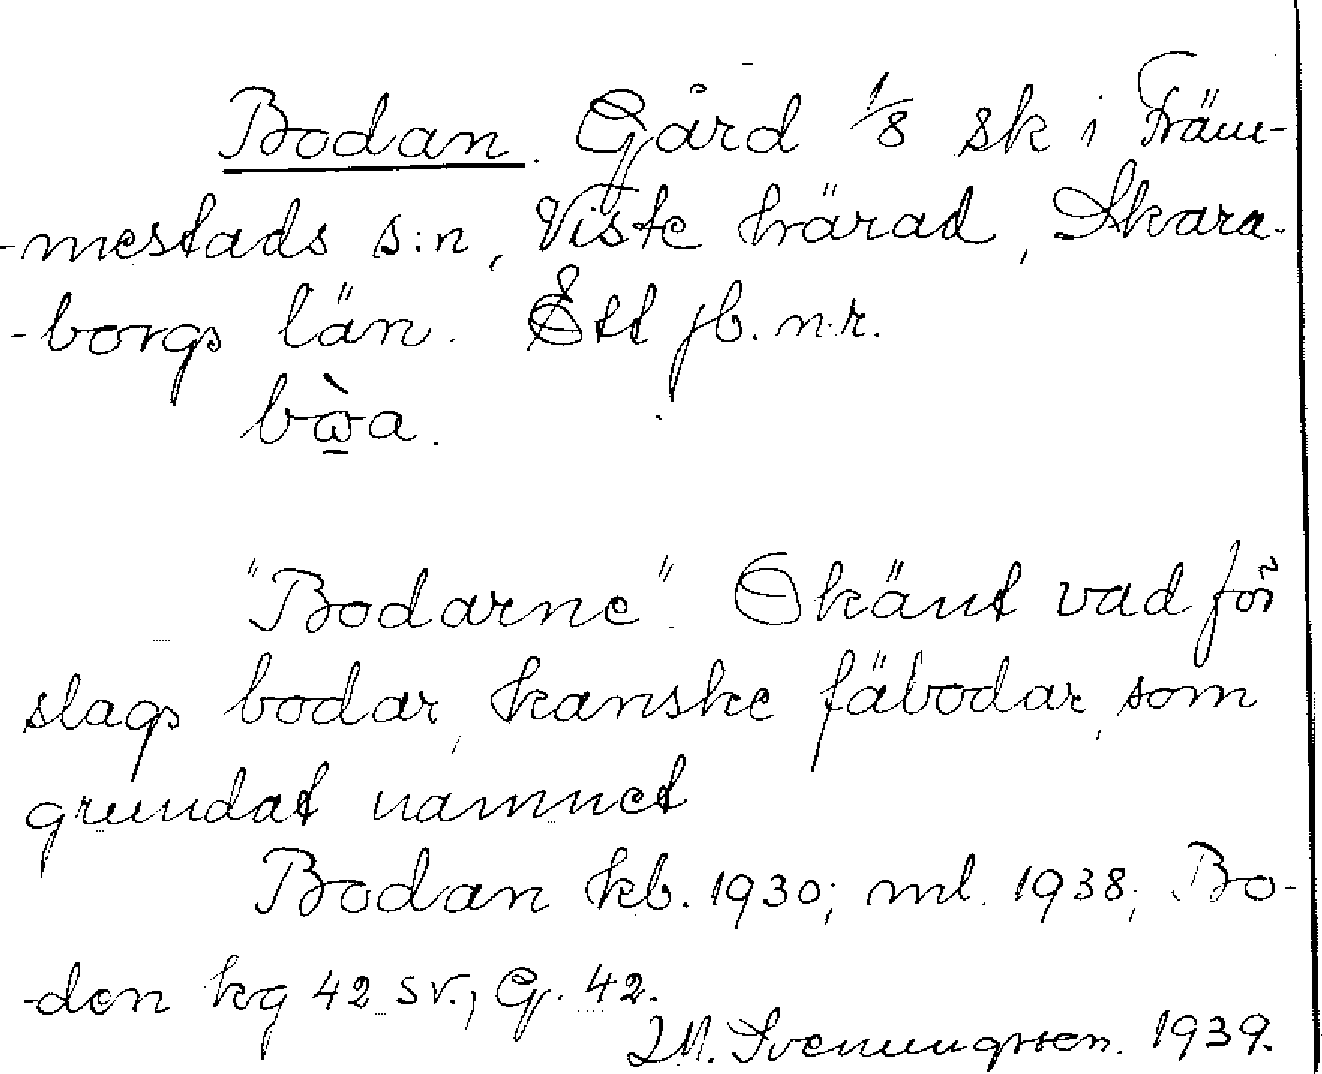 Bodan. Gård 1/8 sk i Främ-
-mestads s:n, Viste härad, Skara-
-borgs län. Ett jb. n.r.
bὼ̲a.
"Bodarne". Okänt vad för
slags bodar, kanske fäbodar, som
grundat namnet
Bodan kb. 1930; ml. 1938; Bo-
-den kg 42 sv., G. 42.
M. Svenungsson. 1939.